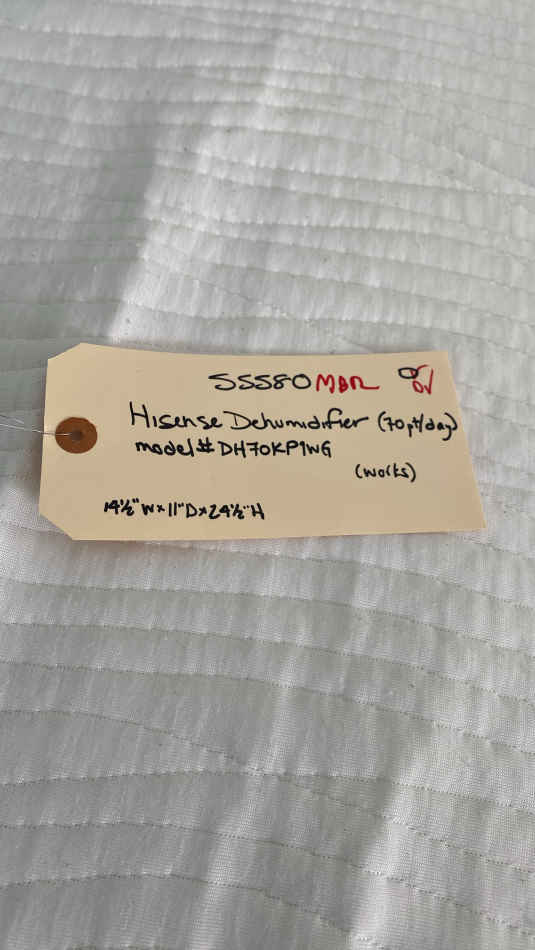 55580 MBR
Hisense Dehumidifier (70 pt/day)
model# DH70KP1WG
(works)
14½" W x 11" D x 24½" H